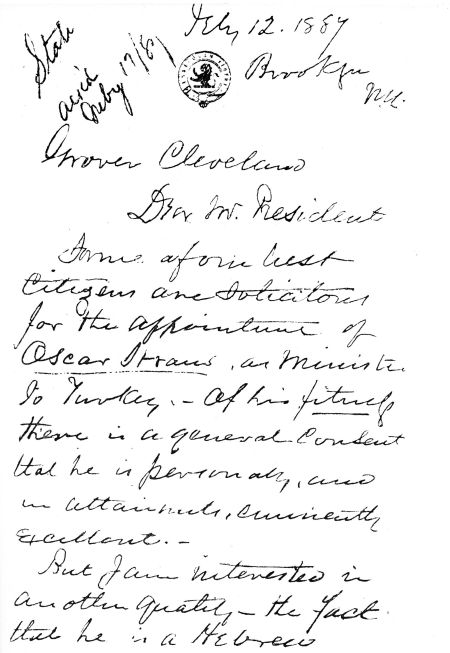 Feby 12. 1887
State
Brooklyn
N.Y.
Grover Cleveland
Dear Mr. President
Some of our best
Citizens are Solicitous
for the appointment of
Oscar Straus, as Minister
to Turkey. - Of his fitness
there is a general Consent
that he is personally, and
in attainments, eminently
excellent. -
But I am interested in
another quality - the fact
that he is a Hebrew